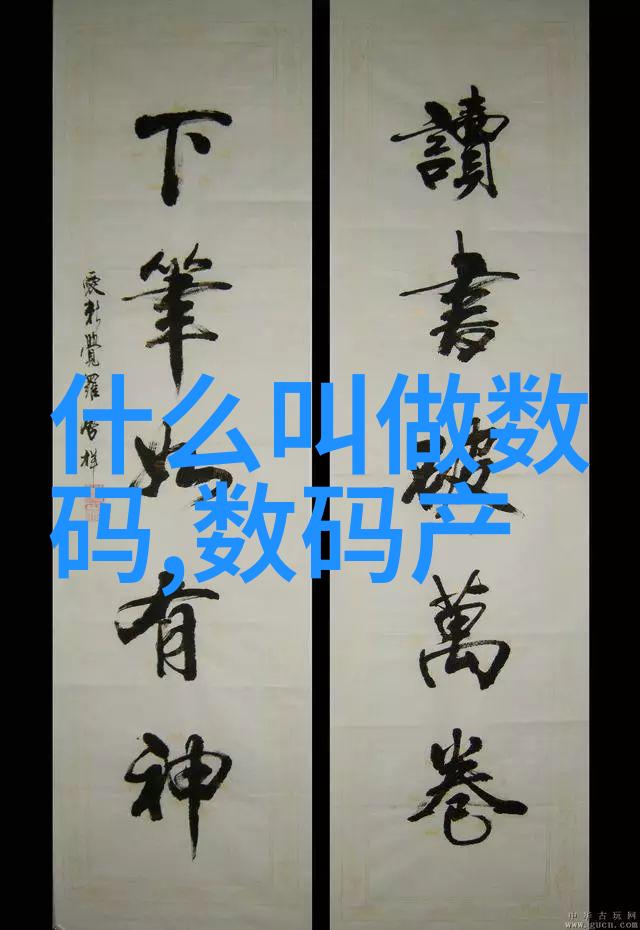 讀書破萬卷
下筆如有神
愛新覺羅
什么叫做数
码,数码产
中华古玩网
www.gucn.com